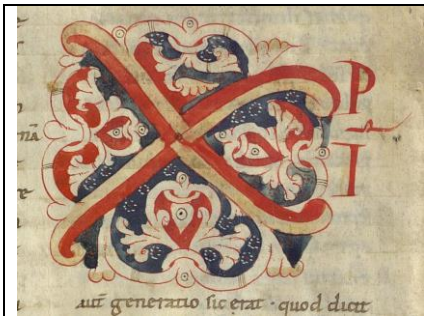 X P
I
aut̄ generatio sic erat · quod dicit